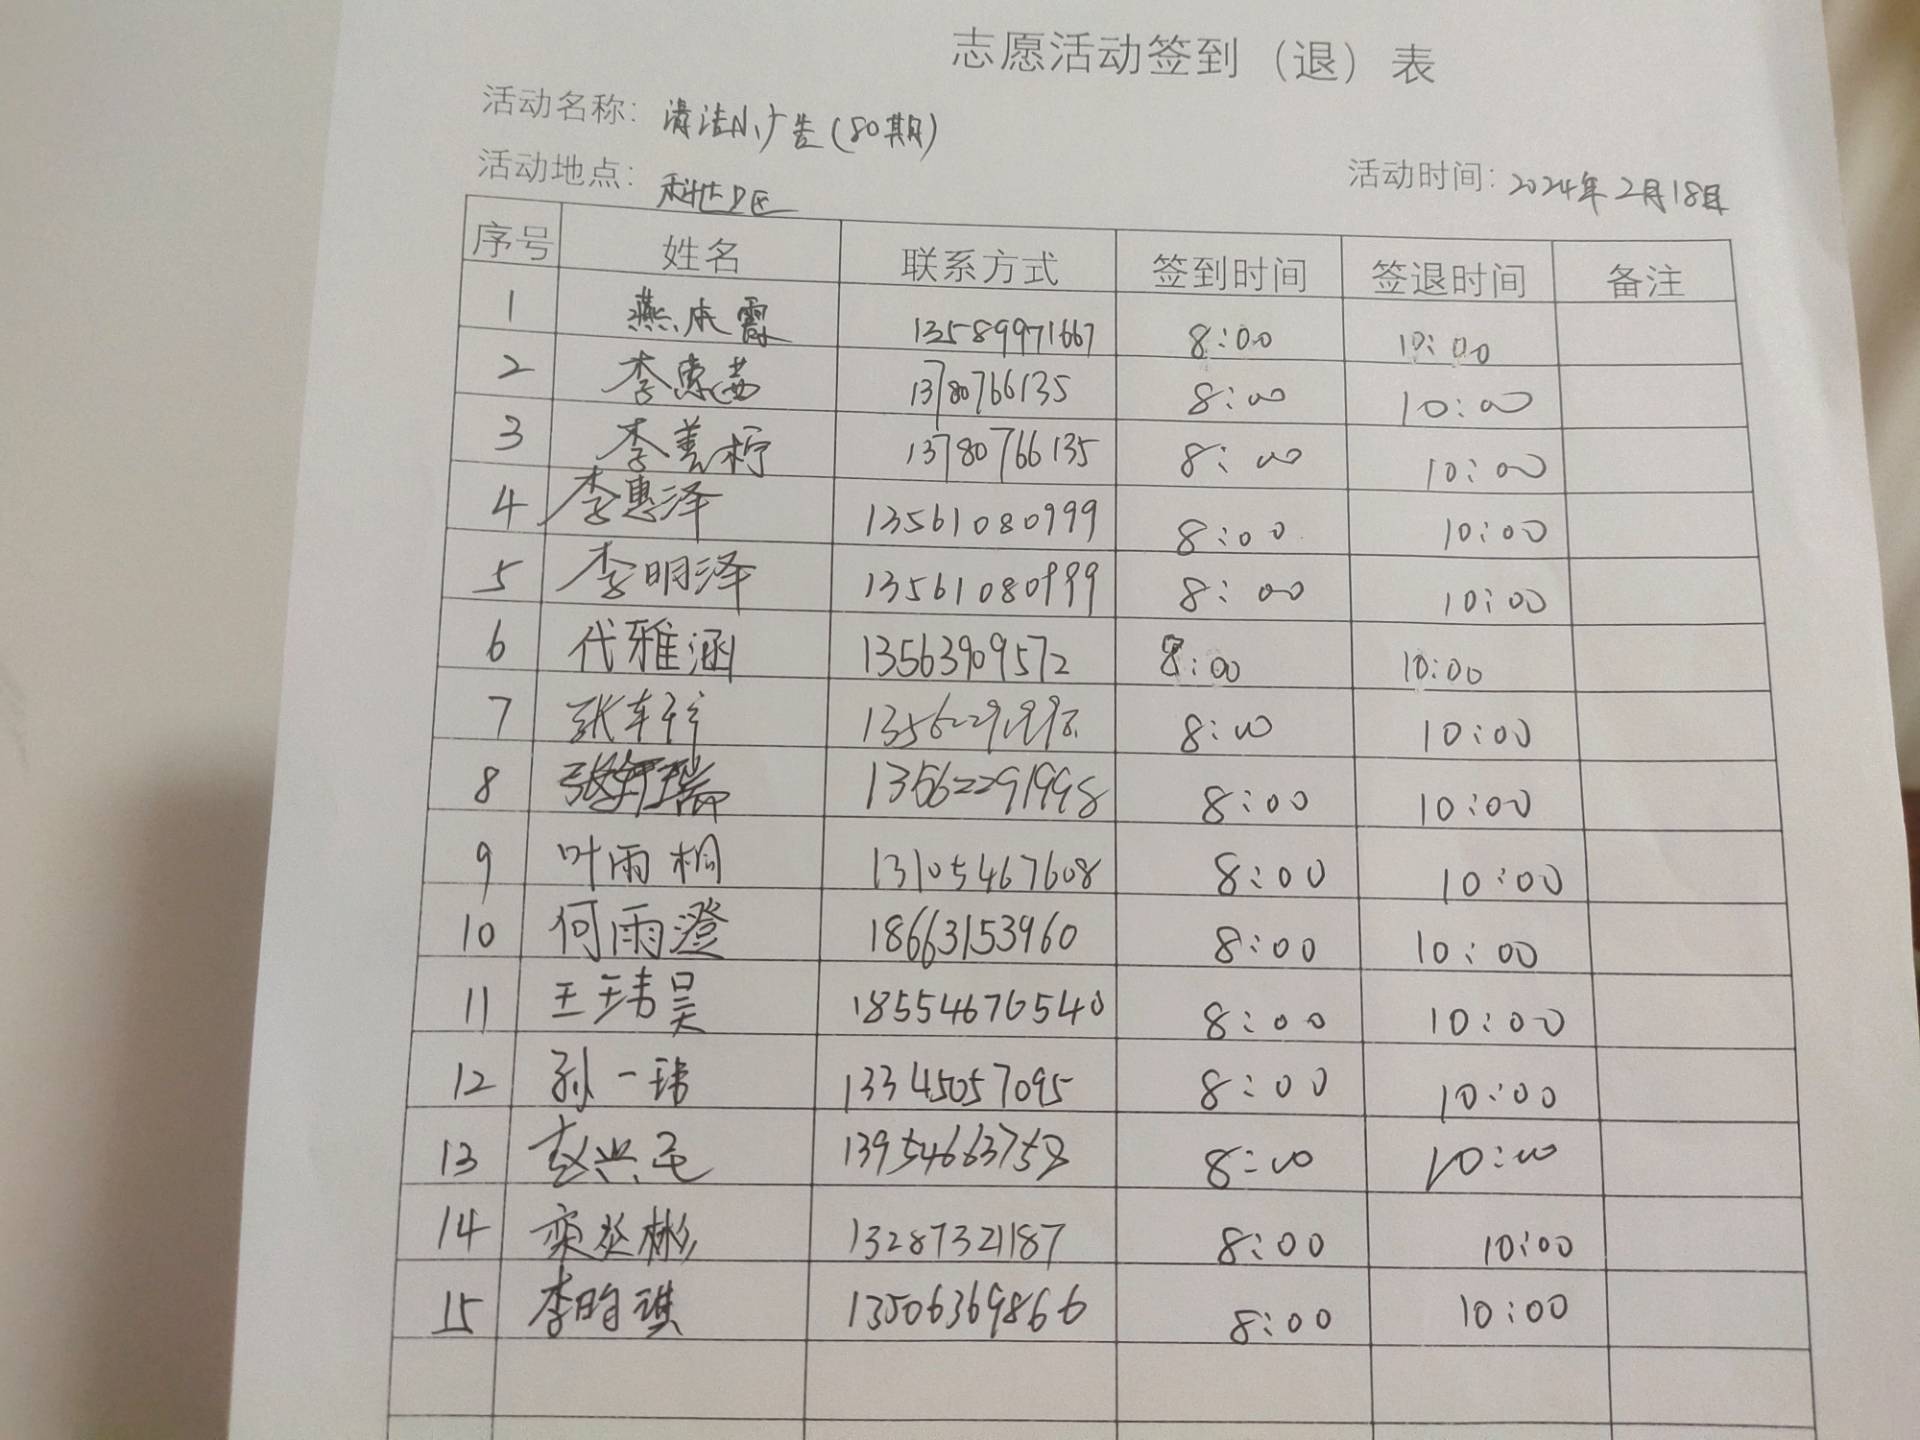 志愿活动签到（退）表
活动名称: 清洁小广告(80期)
活动地点: 科达D区 活动时间: 2024年2月18日
序号 姓名 联系方式 签到时间 签退时间 备注
1 燕本霞 13589971667 8:00 10:00
2 李惠茜 13780766135 8:00 10:00
3 李善柠 13780766135 8:00 10:00
4 李惠泽 13561080999 8:00 10:00
5 李明泽 13561080999 8:00 10:00
6 代雅涵 13563909572 8:00 10:00
7 张 8:00 10:00
8 张轩瑞 13562291998 8:00 10:00
9 叶雨桐 13105467608 8:00 10:00
10 何雨澄 18663153960 8:00 10:00
11 王玮昊 18554676540 8:00 10:00
12 孙一玮 13345057095 8:00 10:00
13 赵兴毛 13954663758 8:00 10:00
14 栾丞彬 13287321187 8:00 10:00
15 李昀琪 13506369866 8:00 10:00